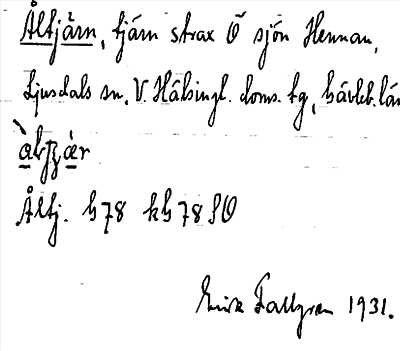 Åltjärn, tjärn strax Ö sjön Hennan,
Ljusdals sn, V. Hälsingl. doms. tg, Gävleb. län
Åltj. h78 kh 78 SO
Erik Fallgren 1931.